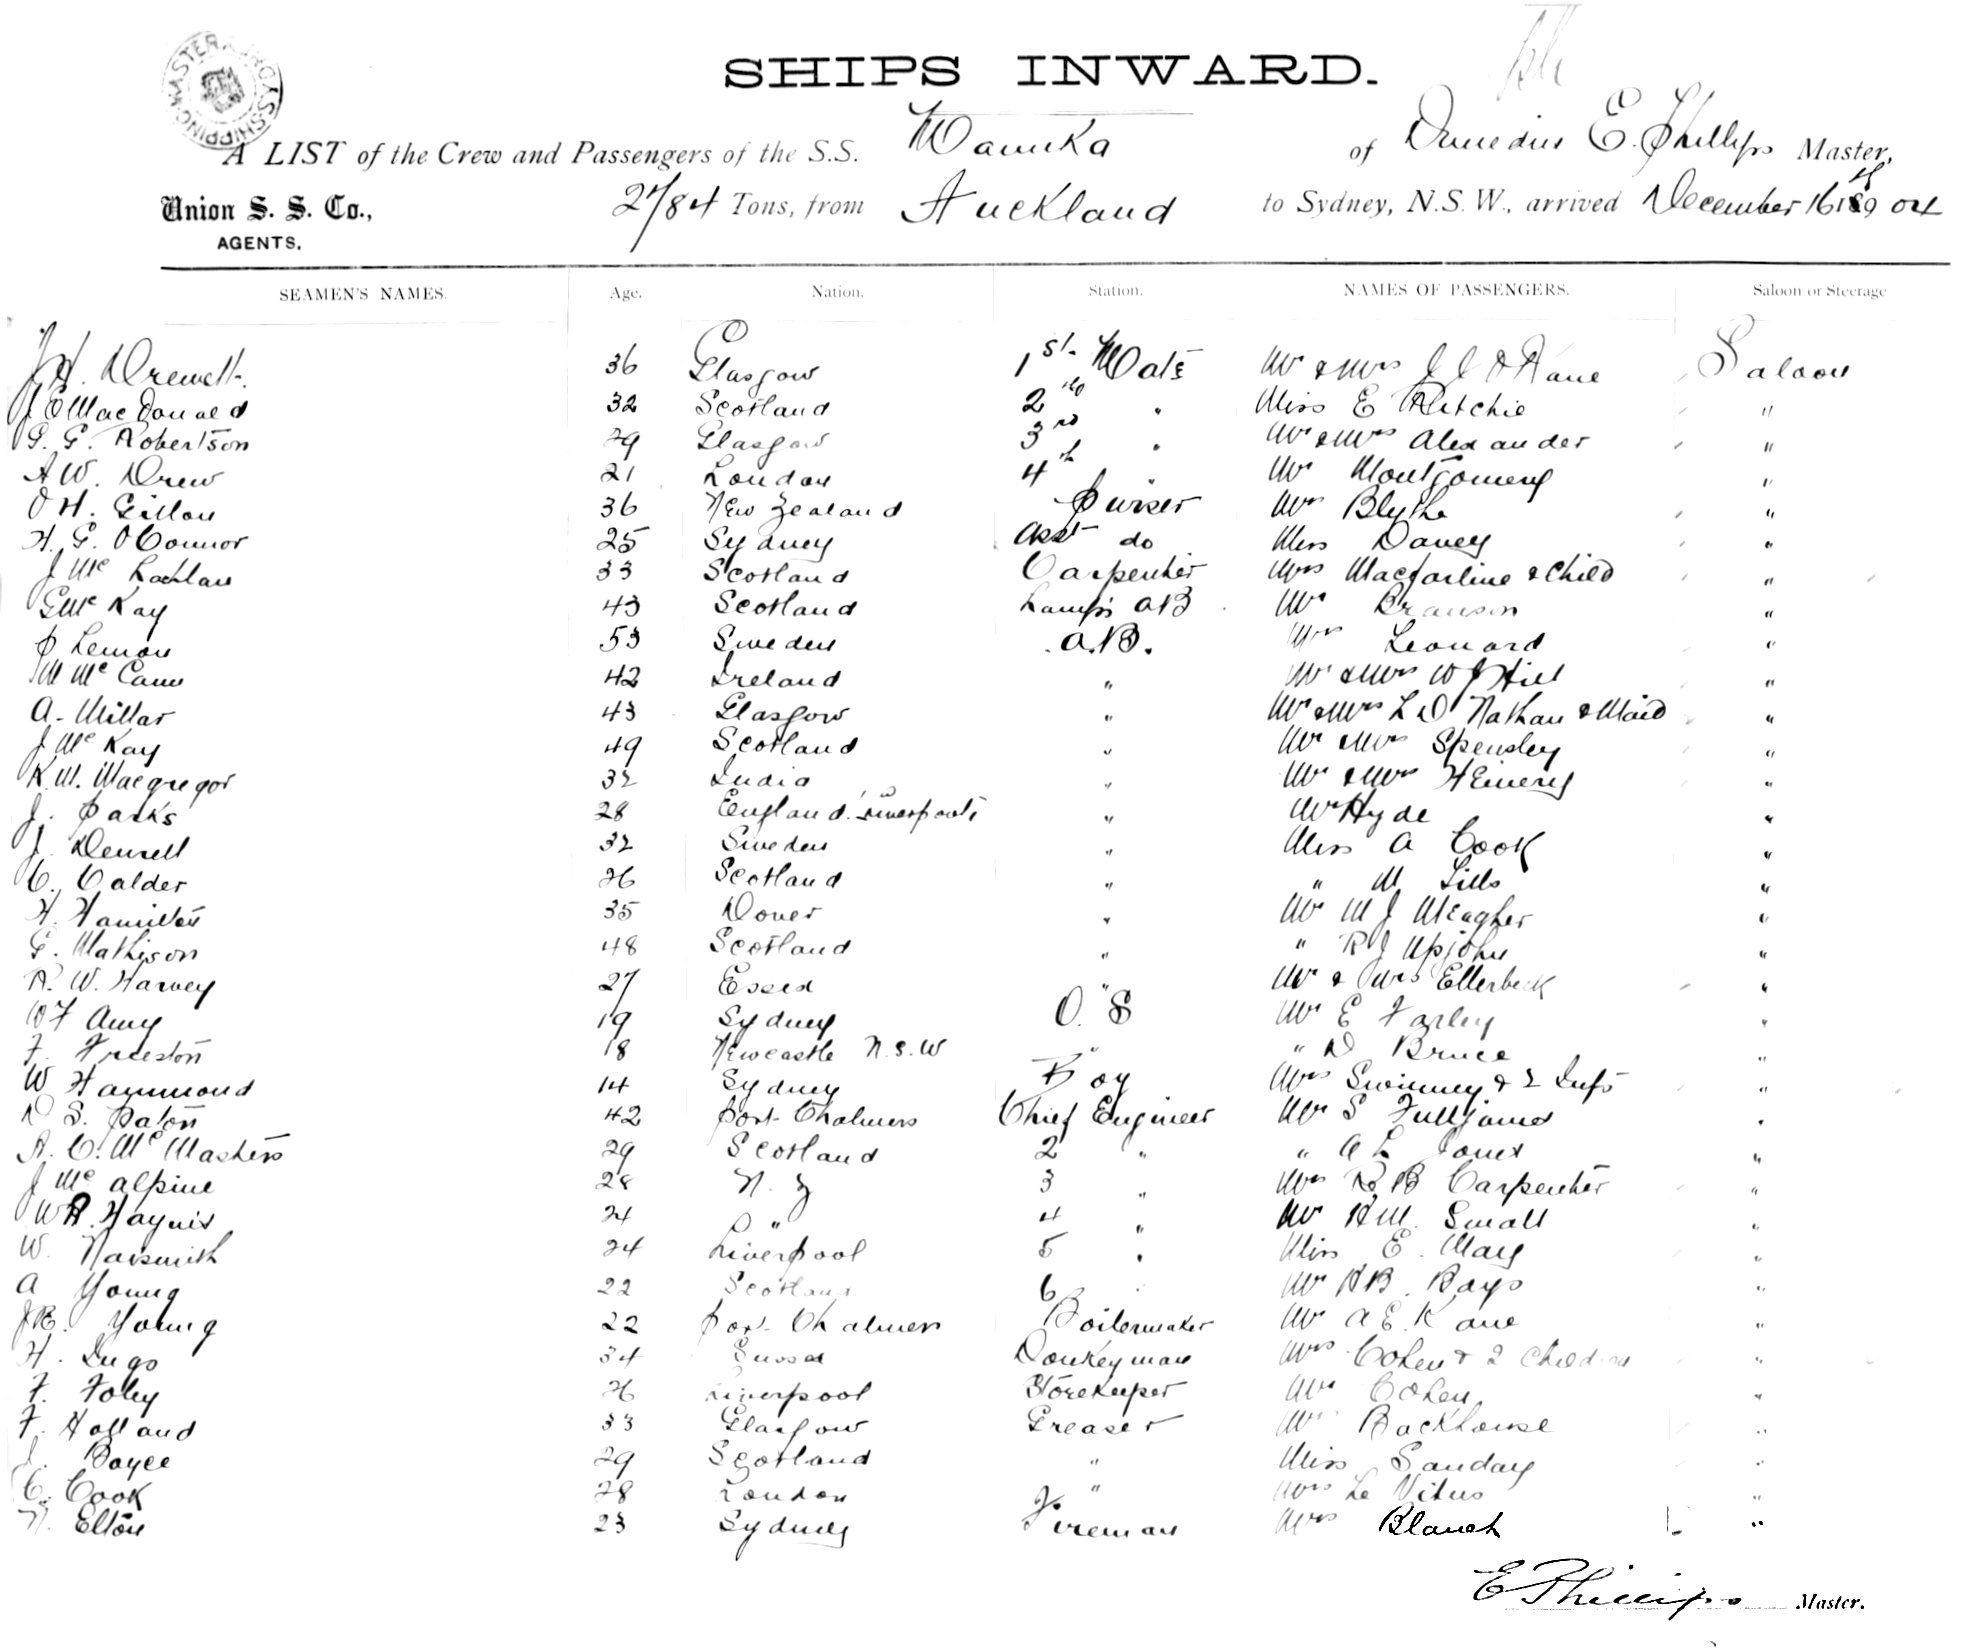 SHIPS INWARD.
A LIST of the Crew and Passengers of the S.S. Manuka of Dunedin E. Phillips Master,
Union S. S. Co., 2784 Tons, from Auckland to Sydney, N.S.W., arrived December 16th 1904
AGENTS.
SEAMEN'S NAMES. Age. Nation. Station. NAMES OF PASSENGERS. Saloon or Steerage
J H. Drewett. 36 Glasgow 1st Mate Mr & Mrs J J O Kane Saloon
J E MacDonald 32 Scotland 2nd " Miss E Ritchie "
G. G. Robertson 29 Glasgow 3rd " Mr & Mrs Alexander "
A W. Drew 21 London 4th " Mr Montgomery "
O H. Gillon 36 New Zealand Purser Mrs Blythe "
H. G. O'Connor 25 Sydney Asst do Miss Davey "
J Mc Lachlan 33 Scotland Carpenter Mrs Macfarline & Child "
G Mc Kay 43 Scotland Lamps AB Mr Branson "
P Lemon 53 Sweden A.B. Mrs Leonard "
M Mc Cann 42 Ireland " Mr & Mrs W J Hill "
A. Millar 43 Glasgow " Mr & Mrs L D Nathan & Maid "
J Mc Kay 49 Scotland " Mr & Mrs Spensley "
K. M. Macgregor 32 India " Mr & Mrs H Emery "
J. Parks 28 England. Liverpool " Mr Hyde "
J. Densell 32 Sweden " Miss A Cook "
C. Calder 26 Scotland " " M Lills "
H. Hamilton 35 Dover " Mr M J Meagher "
G. Mathison 48 Scotland " " R J Upjohn "
R. W. Harvey 27 Essex " Mr & Mrs Ellerbeck "
W F Amy 19 Sydney O. S Mr E Farley "
F. Freeston 18 Newcastle N.S.W " " D Bruce "
W Hammond 14 Sydney Boy Mrs Swinney & 2 Infs "
D S. Paton 42 Port Chalmers Chief Engineer Mr S Fulljames "
A. C. Mc Masters 29 Scotland 2 " " A L Jones "
J Mc Alpine 28 N. Z 3 " Mrs R B Carpenter "
W R. Haynis 24 D " 4 " Mr H M. Small "
W. Nasmith 24 Liverpool 5 " Miss E. Mary "
A Young 22 Scotland 6 Mr H B. Bays "
J R. Young 22 Port Chalmers Boilermaker Mr A E Kane "
H. Lugo 34 Donkeyman Mrs Cohen & 2 Children "
F. Foley 26 Liverpool Storekeeper Mr Cohen "
F. Holland 33 Glasgow Greaser Mr Backhouse "
J. Boyce 29 Scotland " Miss Sanday "
C. Cook 28 London " Mrs Le Vitus "
N. Elton 23 Sydney Fireman Mrs Blanch "
E Phillips Master.